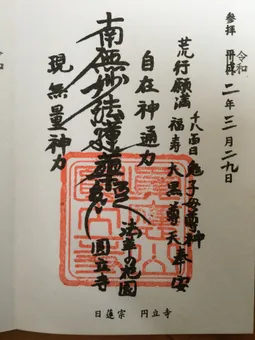 参拝 令和 二年三月二九日
荒行願満 千八百日 鬼子母尊神
福寿大黒尊天奉安
自在神通力
南無妙法蓮華経
圓立寺
現無量神力
日蓮宗 円立寺